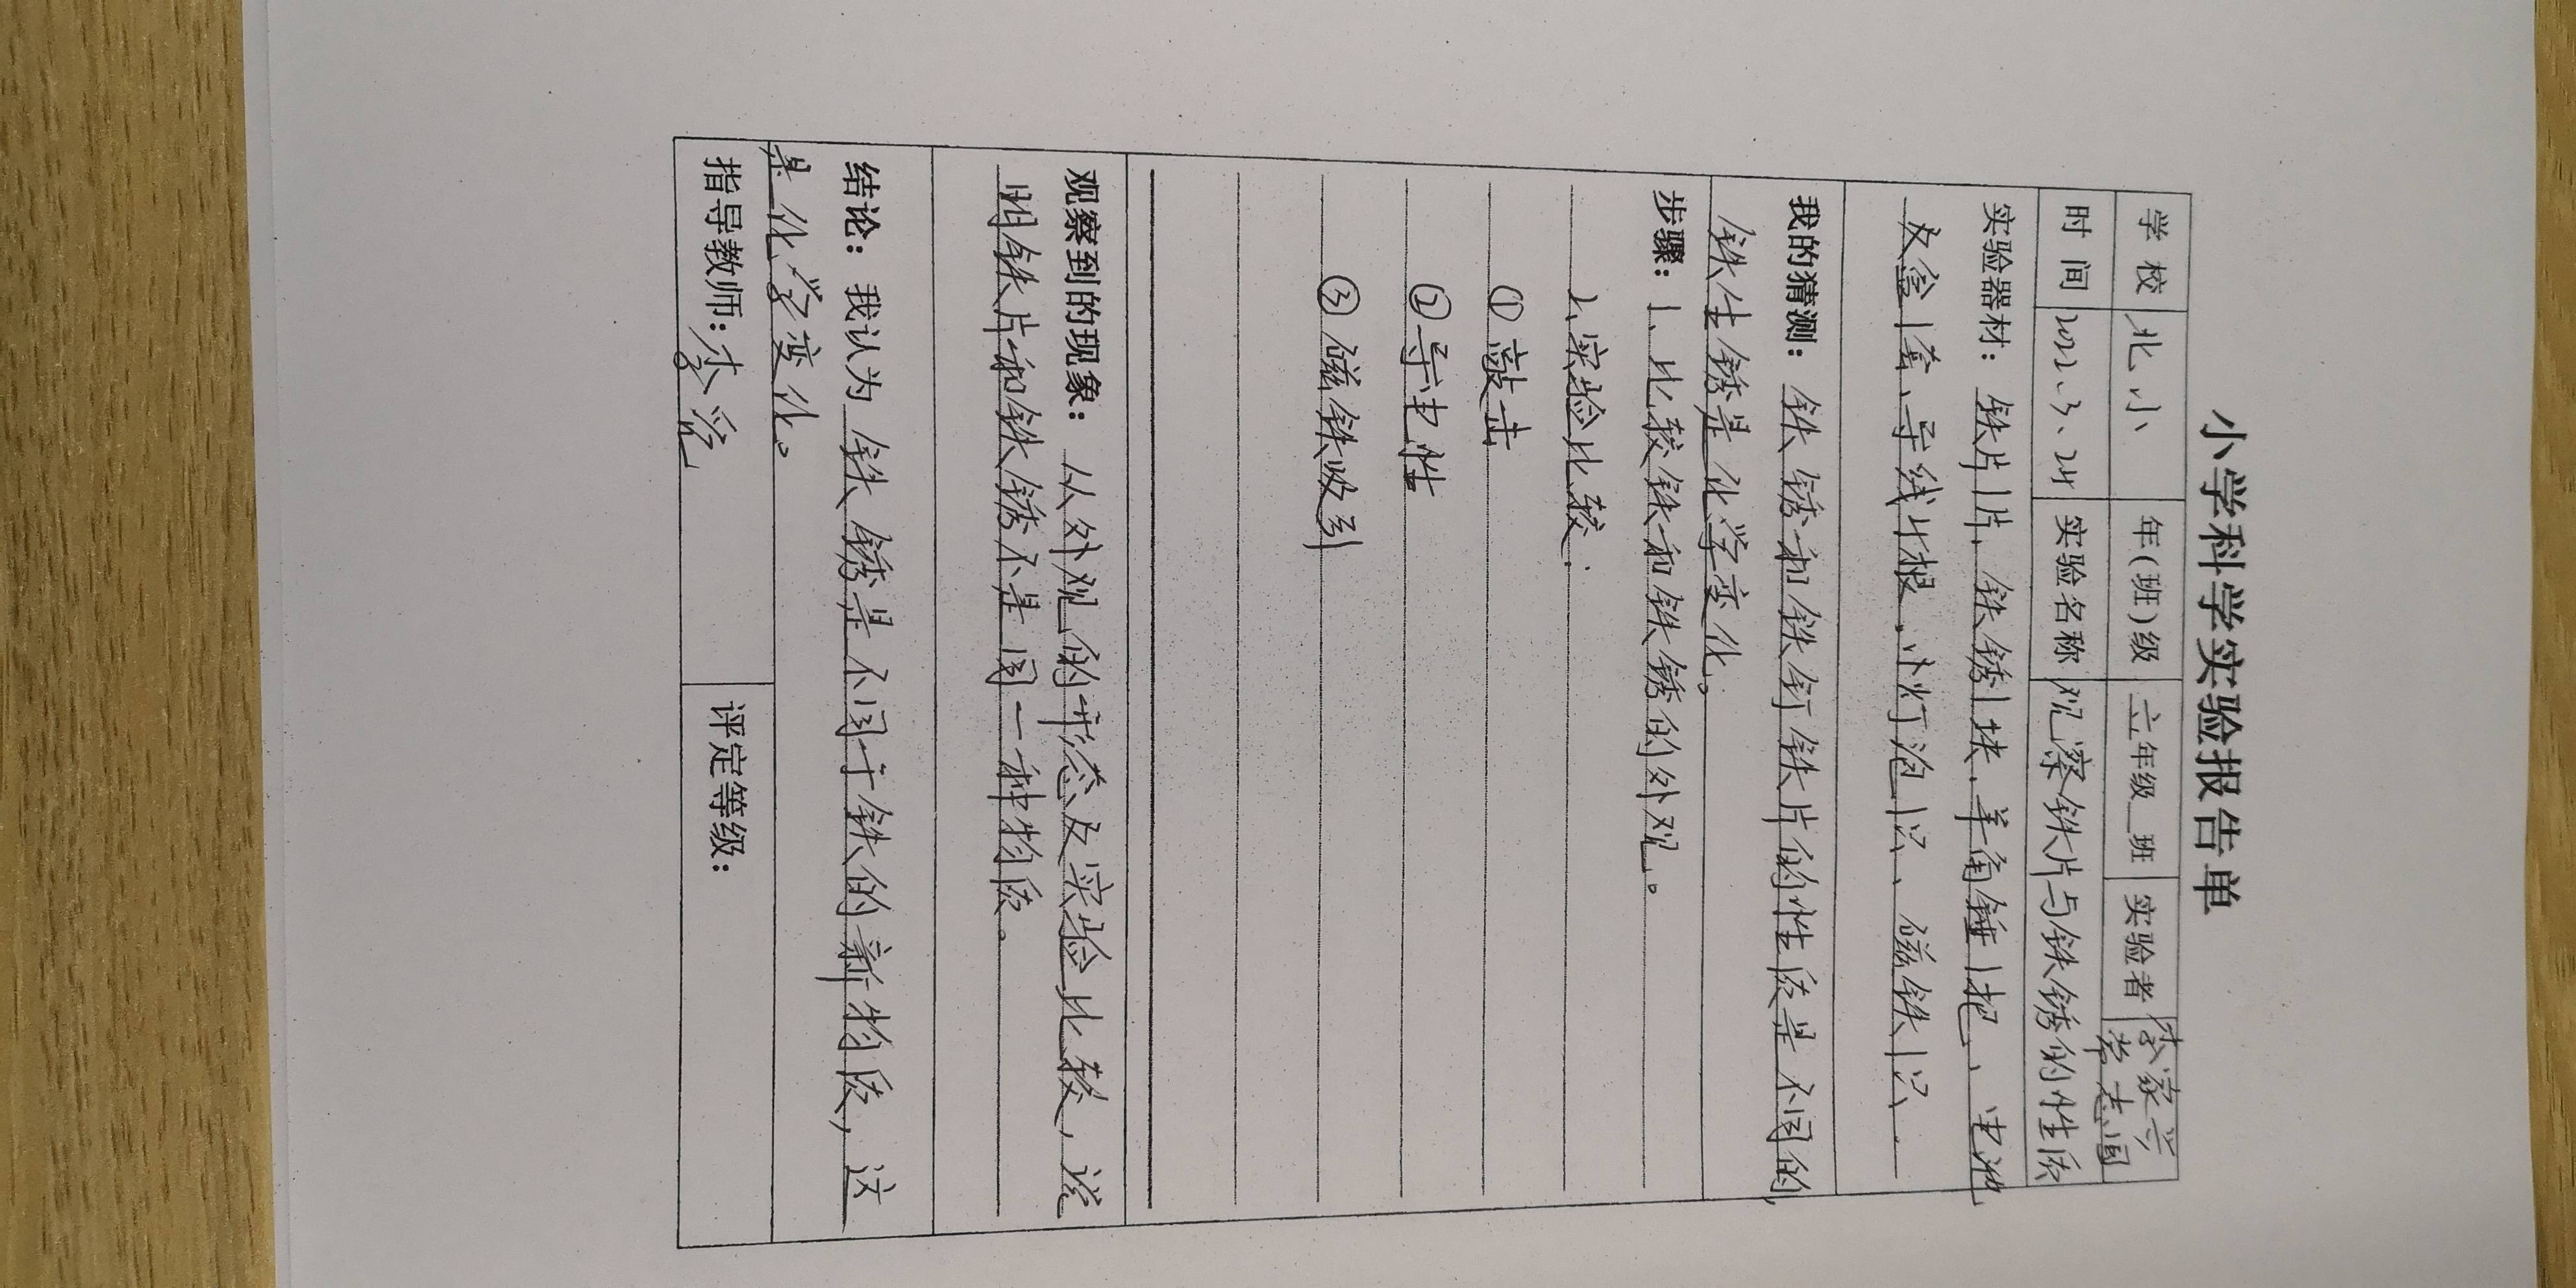 小学科学实验报告单
学校 北小 年(班)级 六年级 班 实验者
时间 2022、3、24 实验名称 观察铁片与铁锈的性质
实验器材：铁片1片、铁锈1块、羊角锤1把、电池
及盒1套、导线 根、小灯泡1只、磁铁1只、
我的猜测：铁锈和铁钉铁片的性质是不同的,
铁生锈是化学变化。
步骤：1、比较铁和铁锈的外观。
2、实验比较：
①敲击
②导电性
③磁铁吸引
观察到的现象：从外观的形态及实验比较，说
明铁片和铁锈不是同一种物质。
结论：我认为铁锈是不同于铁的新物质，这
是化学变化。
指导教师：李 评定等级：